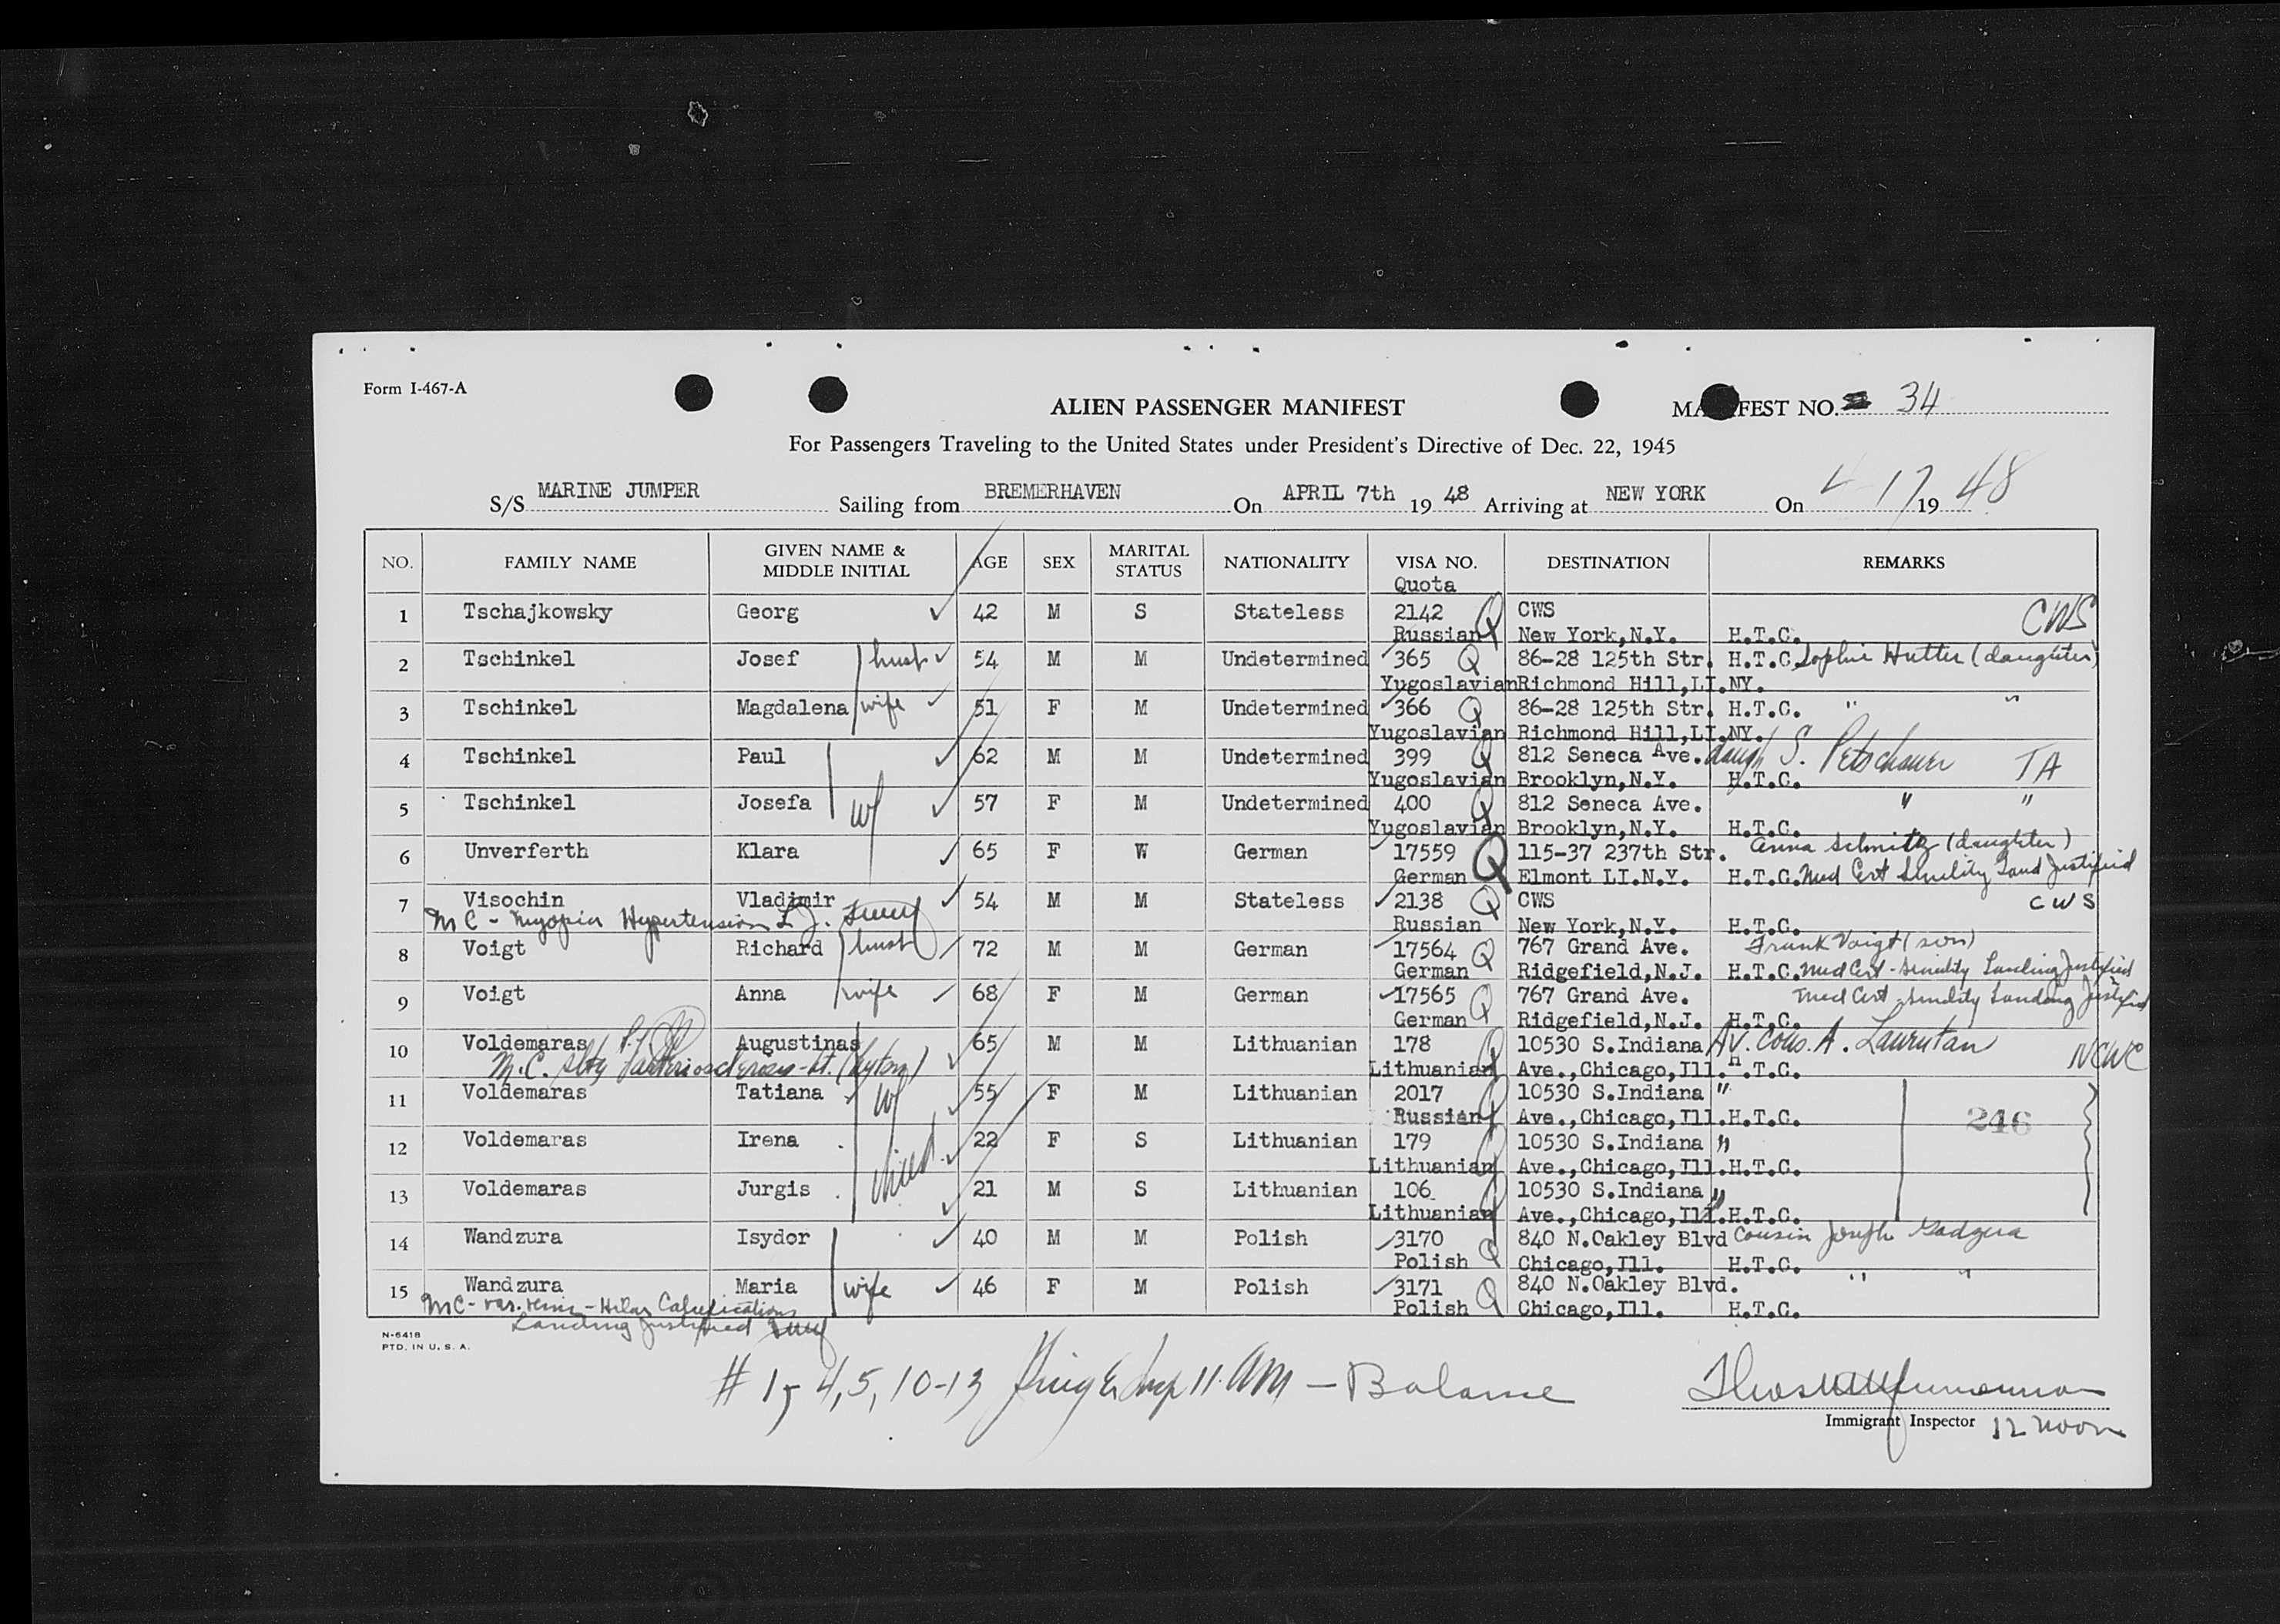 Form I-467-A
ALIEN PASSENGER MANIFEST
MANIFEST NO. 34
For Passengers Traveling to the United States under President's Directive of Dec. 22, 1945
S/S MARINE JUMPER Sailing from BREMERHAVEN On APRIL 7th 19 48 Arriving at NEW YORK On 4-17 19 48
NO. FAMILY NAME GIVEN NAME & MIDDLE INITIAL AGE SEX MARITAL STATUS NATIONALITY VISA NO. DESTINATION REMARKS
Quota
1 Tschajkowsky Georg 42 M S Stateless 2142 Q CWS CWS
Russian New York,N.Y. H.T.C.
2 Tschinkel Josef husb 54 M M Undetermined 365 Q 86-28 125th Str. H.T.C. Sophie Hutter (daughter)
Yugoslavian Richmond Hill,LI.NY.
3 Tschinkel Magdalena wife 51 F M Undetermined 366 Q 86-28 125th Str. H.T.C. " "
Yugoslavian Richmond Hill,LI.NY.
4 Tschinkel Paul 62 M M Undetermined 399 Q 812 Seneca Ave. daugh S. Petschauer TA
Yugoslavian Brooklyn,N.Y. H.T.C.
5 Tschinkel Josefa wf 57 F M Undetermined 400 Q 812 Seneca Ave. " "
Yugoslavian Brooklyn,N.Y. H.T.C.
6 Unverferth Klara 65 F W German 17559 Q 115-37 237th Str. Anna Schmitz (daughter)
German Elmont LI.N.Y. H.T.C. Med Cert Senility Land Justified
7 Visochin Vladimir 54 M M Stateless 2138 Q CWS CWS
MC - Myopia Hypertension L.J. Russian New York,N.Y. H.T.C.
8 Voigt Richard husb 72 M M German 17564 Q 767 Grand Ave. Frank Voigt (son)
German Ridgefield,N.J. H.T.C. Med Cert - Senility Landing Justified
9 Voigt Anna wife 68 F M German 17565 Q 767 Grand Ave. Med Cert Senility Landing Justified
German Ridgefield,N.J. H.T.C.
10 Voldemaras Augustinas 65 M M Lithuanian 178 Q 10530 S.Indiana A. NCWC
M.C. Lithuanian Ave.,Chicago,Ill. H.T.C.
11 Voldemaras Tatiana wf 55 F M Lithuanian 2017 Q 10530 S.Indiana "
Russian Ave.,Chicago,Ill. H.T.C. 246
12 Voldemaras Irena 22 F S Lithuanian 179 Q 10530 S.Indiana "
Lithuanian Ave.,Chicago,Ill. H.T.C.
13 Voldemaras Jurgis 21 M S Lithuanian 106 Q 10530 S.Indiana "
Lithuanian Ave.,Chicago,Ill. H.T.C.
14 Wandzura Isydor 40 M M Polish 3170 Q 840 N.Oakley Blvd Cousin Joseph
Polish Chicago,Ill. H.T.C.
15 Wandzura Maria wife 46 F M Polish 3171 Q 840 N.Oakley Blvd. " "
MC - var. veins - Hilar Calcifications Polish Chicago,Ill. H.T.C.
Landing Justified
N-6418
PTD. IN U. S. A.
# 1, 4, 5, 10-13 11 AM - Balance
Immigrant Inspector 12 noon